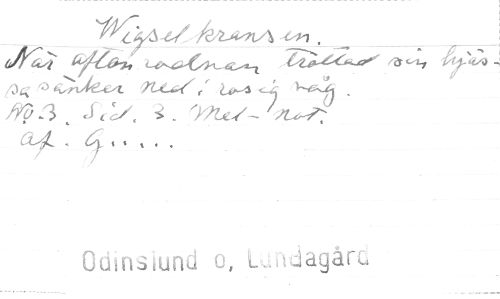 Wigselkransen.
När aftonrodnan tröttad sin hjäs-
sa sänker ned i rosig våg.
No. 3. Sid. 3. Mel-not.
af. G.....
Odinslund o, Lundagård